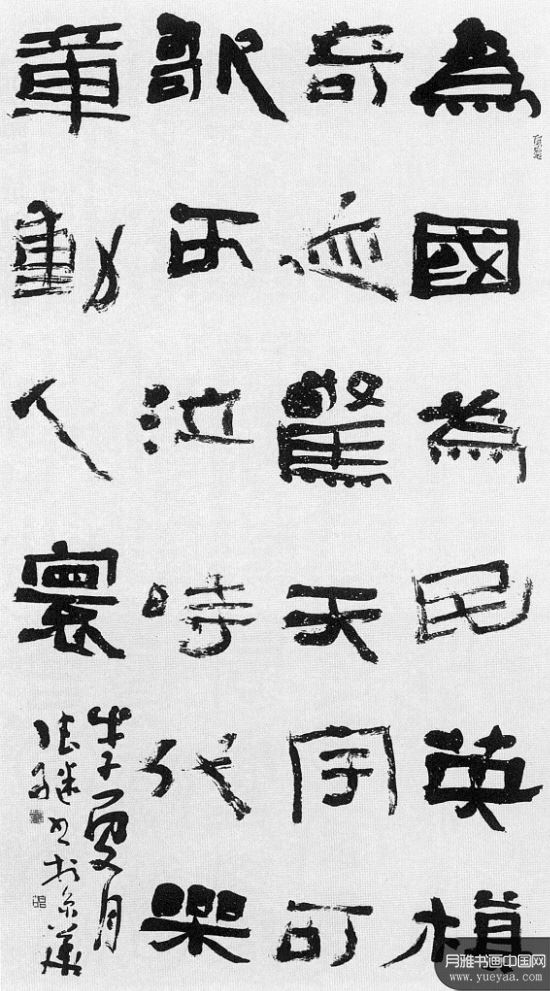 為國為民英模
奇迹驚天宇可
歌可泣時代樂
章動人寰
子夏月
张继书於京華
月雅书画中国网
www.yueyaa.com